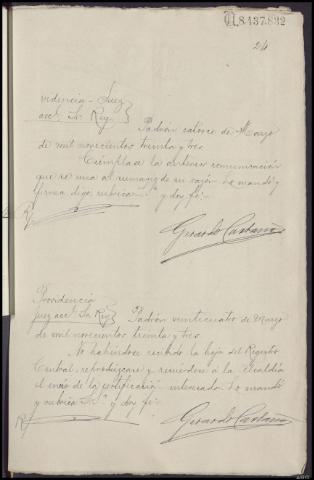 8.437.832
24
videncia - Juez
acc. Sr. Rey
Padrón catorce de Marzo
de mil novecientos treinta y tres
Cúmplase la anterior comunicación
que se una al sumario de su razón. Lo mandó y
firma digo, rubrica Sª y doy fé.
Gerardo Castaño
Providencia
Juez acc. Sr. Rey
Padrón veinticuatro de Marzo
de mil novecientos treinta y tres.
No habiéndose recibido la hoja del Registro
Central, reprodúzcase y recuérdese á la Alcaldía
el envío de la certificación interesada. Lo mandó
y rubrica Sª y doy fé.
Gerardo Castaño